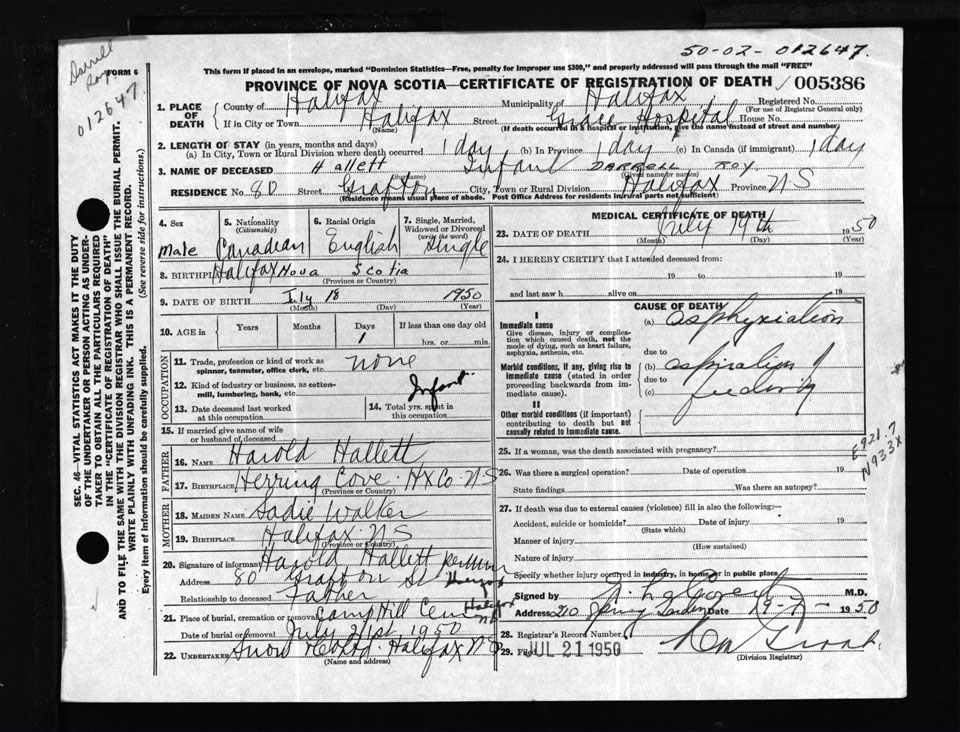 50-02-012647.
Darrell
Roy
012647.
FORM 6
This form if placed in an envelope, marked "Dominion Statistics—Free, penalty for improper use $300," and properly addressed will pass through the mail "FREE"
PROVINCE OF NOVA SCOTIA—CERTIFICATE OF REGISTRATION OF DEATH 005386
1. PLACE OF DEATH
County of Halifax Municipality of Halifax Registered No.
(For use of Registrar General only)
If in City or Town Halifax Street Grace Hospital House No.
(Name) (If death occurred in a hospital or institution, give the name instead of street and number)
2. LENGTH OF STAY (in years, months and days)
(a) In City, Town or Rural Division where death occurred 1 day (b) In Province 1 day (c) In Canada (if immigrant) 1 day
3. NAME OF DECEASED Hallett Infant DARRELL ROY
(Surname) (Given name or names)
RESIDENCE No. 80 Street Grafton City, Town or Rural Division Halifax Province N S
(Residence means usual place of abode. Post Office Address for residents in rural parts not sufficient)
4. Sex
Male
5. Nationality
(Citizenship)
Canadian
6. Racial Origin
English
7. Single, Married, Widowed or Divorced
(write the word)
Single
8. BIRTHPLACE Halifax Nova Scotia
(Province or Country)
9. DATE OF BIRTH July 18 1950
(Month) (Day) (Year)
10. AGE in Years Months Days If less than one day old
1 hrs. or min.
OCCUPATION
11. Trade, profession or kind of work as spinner, teamster, office clerk, etc. none
12. Kind of industry or business, as cotton-mill, lumbering, bank, etc. Infant
13. Date deceased last worked at this occupation
14. Total yrs. spent in this occupation
15. If married give name of wife or husband of deceased
FATHER
16. NAME Harold Hallett
17. BIRTHPLACE Herring Cove Hx Co. N S
(Province or Country)
MOTHER
18. MAIDEN NAME Sadie Walker
19. BIRTHPLACE Halifax N S
(Province or Country)
20. Signature of informant Harold Hallett
Address 80 Grafton St
Relationship to deceased Father
21. Place of burial, cremation or removal Camp Hill Cem Halifax NS
Date of burial or removal July 21st 1950
22. UNDERTAKER Snow & Co Ltd. Halifax N S
(Name and address)
MEDICAL CERTIFICATE OF DEATH
23. DATE OF DEATH July 19th 1950
(Month) (Day) (Year)
24. I HEREBY CERTIFY that I attended deceased from:
19 to 19
and last saw h alive on 19
CAUSE OF DEATH
I
Immediate cause
Give disease, injury or complication which caused death, not the mode of dying, such as heart failure, asphyxia, asthenia, etc.
(a) asphyxiation
due to
Morbid conditions, if any, giving rise to immediate cause (stated in order proceeding backwards from immediate cause).
(b) aspiration of
due to
(c) feeding
II
Other morbid conditions (if important) contributing to death but not causally related to immediate cause.
E921.7
N933X
25. If a woman, was the death associated with pregnancy?
26. Was there a surgical operation? Date of operation 19
State findings Was there an autopsy?
27. If death was due to external causes (violence) fill in also the following:
Accident, suicide or homicide? Date of injury 19
(State which)
Manner of injury
(How sustained)
Nature of injury
Specify whether injury occurred in industry, in home or in public place
Signed by M.D.
Address 210 Spring Garden Date 19-7- 1950
28. Registrar's Record Number
29. Filed JUL 21 1950
(Division Registrar)
SEC. 46—VITAL STATISTICS ACT MAKES IT THE DUTY OF THE UNDERTAKER OR PERSON ACTING AS UNDERTAKER TO OBTAIN ALL THE PARTICULARS REQUIRED IN THE "CERTIFICATE OF REGISTRATION OF DEATH" AND TO FILE THE SAME WITH THE DIVISION REGISTRAR WHO SHALL ISSUE THE BURIAL PERMIT.
WRITE PLAINLY WITH UNFADING INK. THIS IS A PERMANENT RECORD.
Every item of information should be carefully supplied. (See reverse side for instructions.)